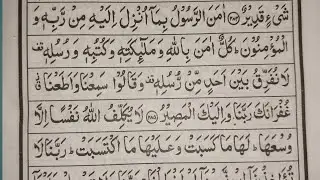 شَیْءٍ قَدِیْرٌ ﴿۲۸۴﴾ اٰمَنَ الرَّسُوْلُ بِمَاۤ اُنْزِلَ اِلَیْهِ مِنْ رَّبِّهٖ وَ
الْمُؤْمِنُوْنَ ؕ كُلٌّ اٰمَنَ بِاللّٰهِ وَمَلٰٓئِكَتِهٖ وَكُتُبِهٖ وَرُسُلِهٖ ۫
لَا نُفَرِّقُ بَیْنَ اَحَدٍ مِّنْ رُّسُلِهٖ ۫ وَقَالُوْا سَمِعْنَا وَاَطَعْنَا ٭۫
غُفْرَانَكَ رَبَّنَا وَاِلَیْكَ الْمَصِیْرُ ﴿۲۸۵﴾ لَا یُكَلِّفُ اللّٰهُ نَفْسًا اِلَّا
وُسْعَهَا ؕ لَهَا مَا كَسَبَتْ وَعَلَیْهَا مَا اكْتَسَبَتْ ؕ رَبَّنَا لَا